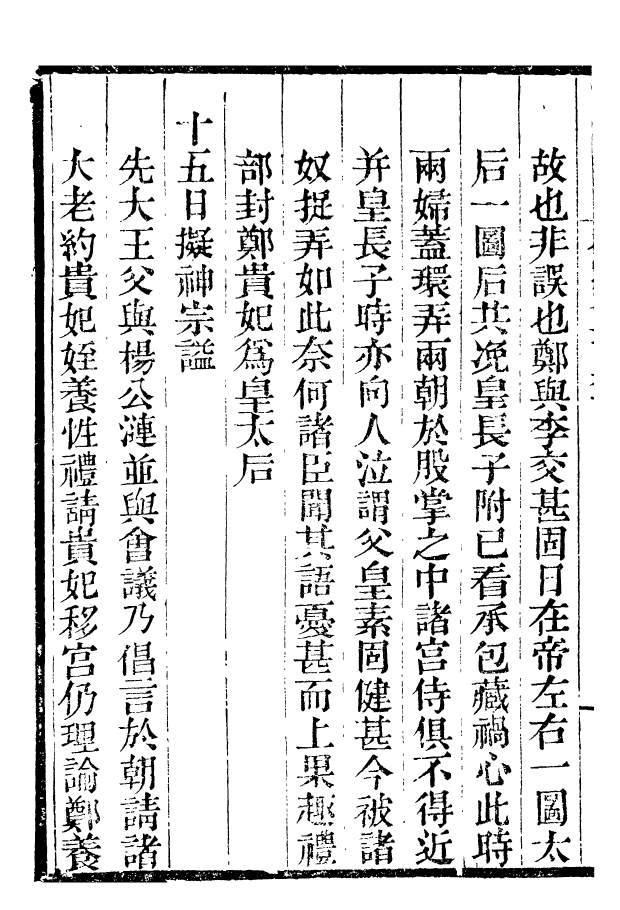 故也非誤也鄭與李交甚固日在帝左右一圖太
后一圖后共凂皇長子附已看承包藏禍心此時
兩婦蓋環弄兩朝於股掌之中諸宮侍俱不得近
幷皇長子時亦向人泣謂父皇素固健甚今被諸
奴捉弄如此奈何諸臣聞其語憂甚而上果趣禮
部封鄭貴妃爲皇太后
十五日擬神宗謚
先大王父與楊公漣並與會議乃倡言於朝請諸
大老約貴妃姪養性禮請貴妃移宮仍理諭鄭養